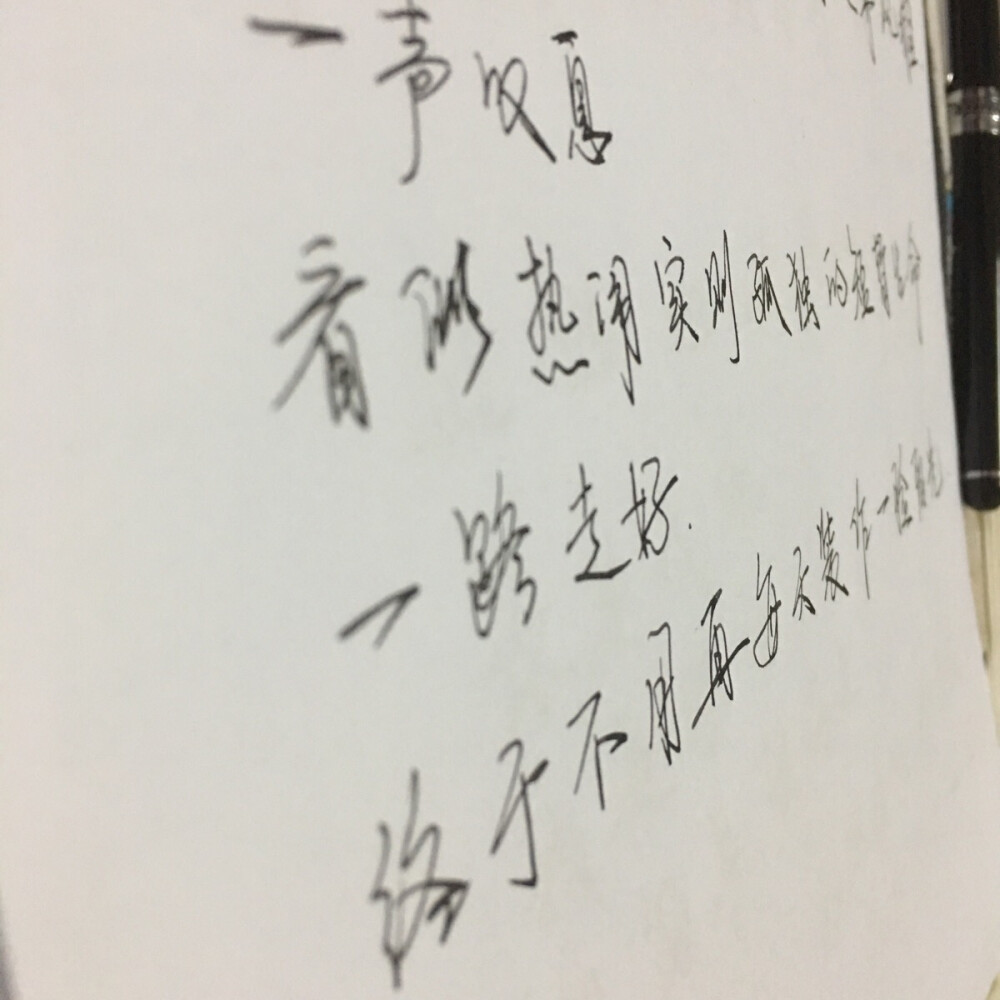 一声叹息
看似热闹实则孤独的短暂生命
一路走好.
终于不用再每天装作一脸